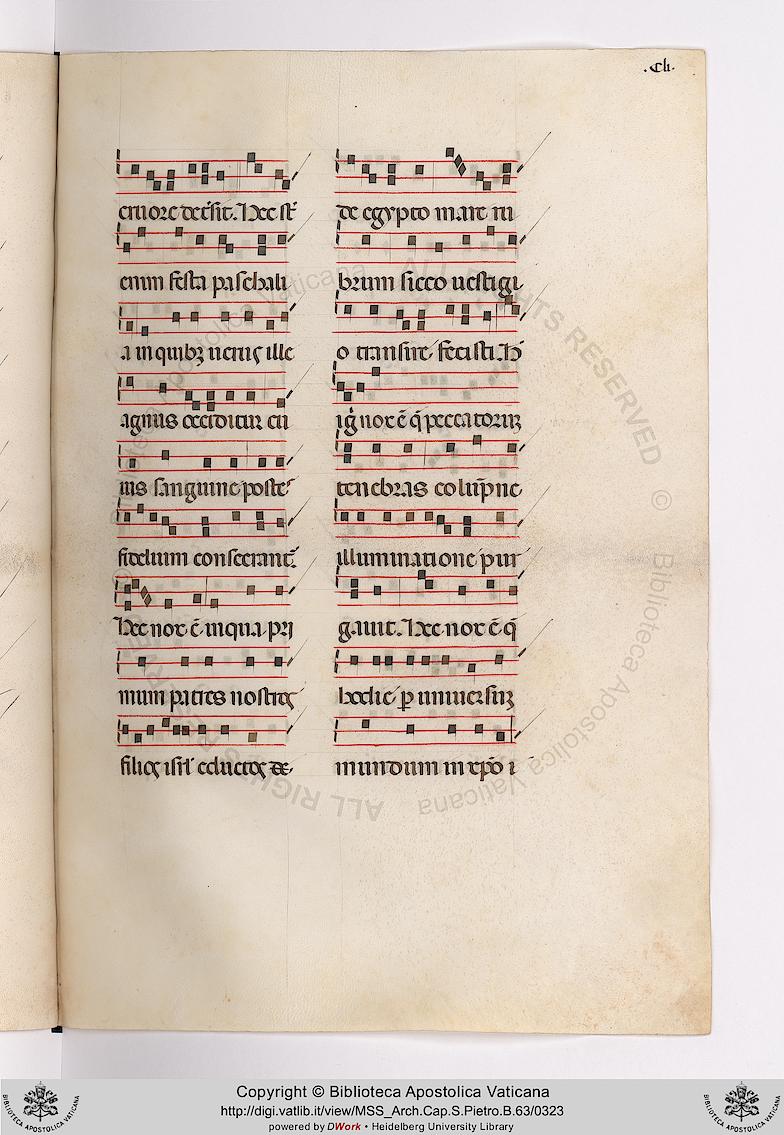 .Cli.
cruore detersit. Hec st̄
enim festa paschali
a in quibȝ uerus ille
agnus occiditur eii
us sanguine postes
fidelium consecrant̄.
Hec nox ē in qua pri
mum patres nostros
filios isrl̄ eductos de
de egypto mare ru
brum sicco uestigi
o transire fecisti. H̄
igr̄ nox ē q̄ peccatorum
tenebras colūpne
illuminatione pur
gauit. Hec nox ē q̄
hodie ꝑ uniuersum
mundum in xp̄o
ALL RIGHTS RESERVED © Biblioteca Apostolica Vaticana
BIBLIOTECA APOSTOLICA VATICANA
Copyright © Biblioteca Apostolica Vaticana
http://digi.vatlib.it/view/MSS_Arch.Cap.S.Pietro.B.63/0323
powered by DWork • Heidelberg University Library
BIBLIOTECA APOSTOLICA VATICANA